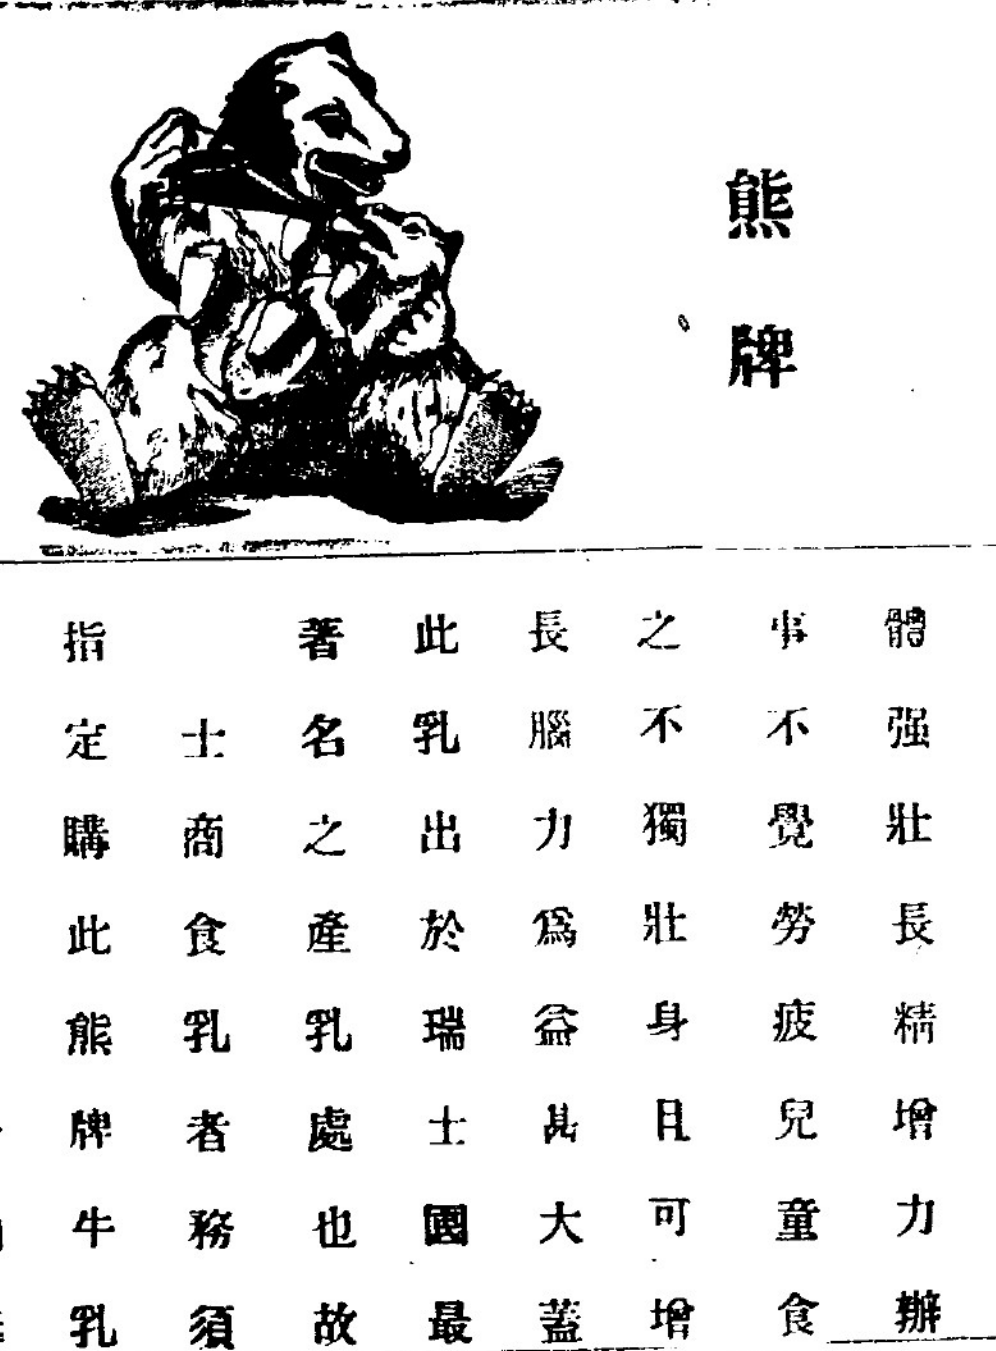 熊牌
體强壯長精增力辦
事不覺勞疲兒童食
之不獨壯身且可增
長腦力爲益甚大蓋
此乳出於瑞士國最
著名之產乳處也故
士商食乳者務須
指定購此熊牌牛乳